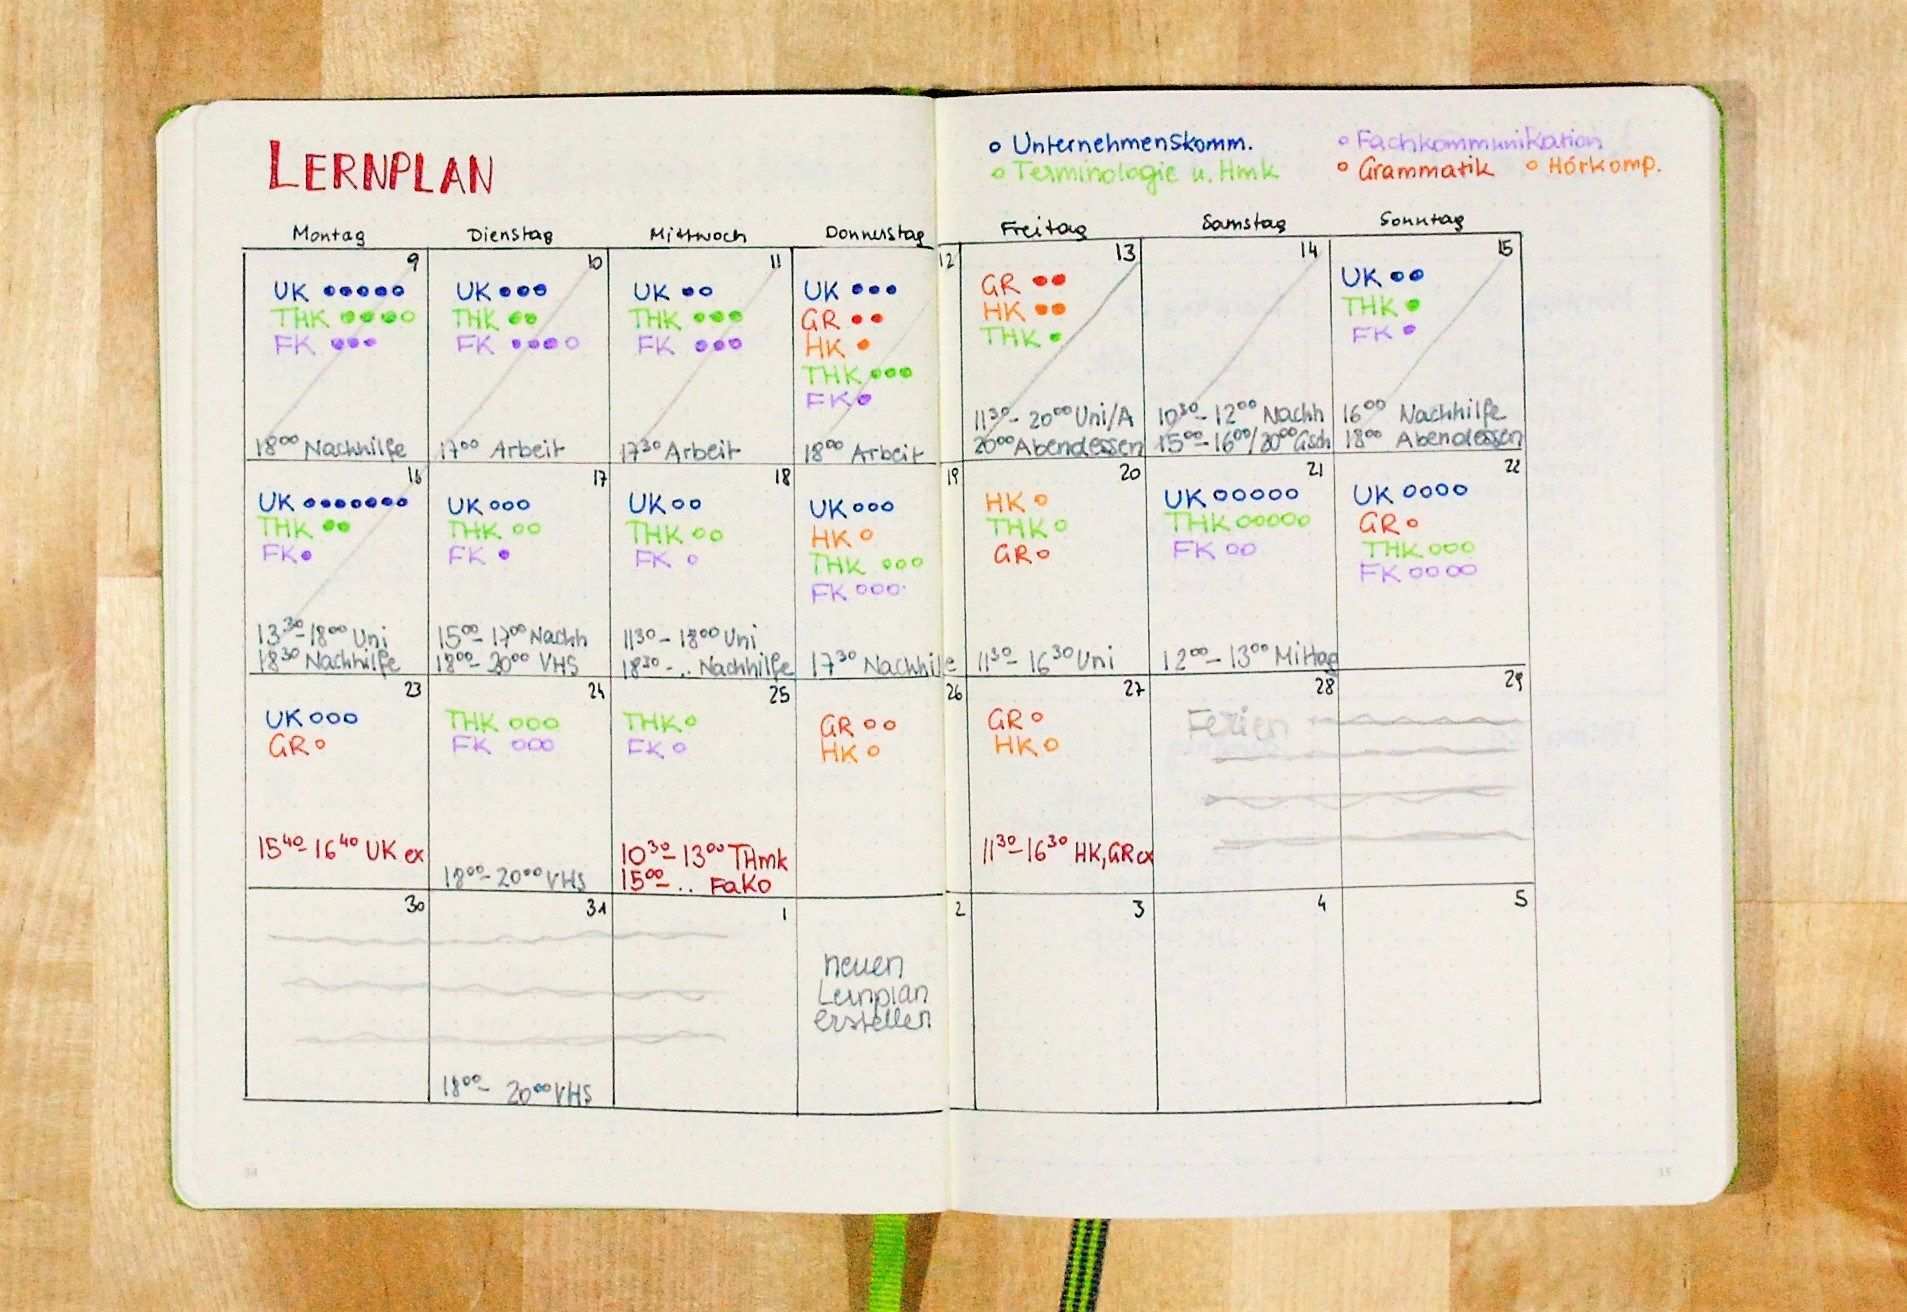 LERNPLAN
Unternehmenskomm.
Fachkommunikation
Terminologie u. Hmk
Grammatik
Hörkomp.
Montag Dienstag Mittwoch Donnerstag Freitag Samstag Sonntag
9
UK
THK
FK
18⁰⁰ Nachhilfe
10
UK
THK
FK
17⁰⁰ Arbeit
11
UK
THK
FK
17³⁰ Arbeit
12
UK
GR
HK
THK
FK
18⁰⁰ Arbeit
13
GR
HK
THK
11³⁰- 20⁰⁰ Uni/A
20⁰⁰ Abendessen
14
10³⁰- 12⁰⁰ Nachh
15⁰⁰-16⁰⁰/20⁰⁰ Gsch
15
UK
THK
FK
16⁰⁰ Nachhilfe
18⁰⁰ Abendessen
16
UK
THK
FK
13³⁰-18⁰⁰ Uni
18³⁰ Nachhilfe
17
UK
THK
FK
15⁰⁰-17⁰⁰ Nachh
18⁰⁰- 20⁰⁰ VHS
18
UK
THK
FK
11³⁰- 18⁰⁰ Uni
18³⁰-.. Nachhilfe
19
UK
HK
THK
FK
17³⁰ Nachhilfe
20
HK
THK
GR
11³⁰- 16³⁰ Uni
21
UK
THK
FK
12⁰⁰-13⁰⁰ Mittag
22
UK
GR
THK
FK
23
UK
GR
15⁴⁰-16⁴⁰ UK ex
24
THK
FK
18⁰⁰-20⁰⁰ VHS
25
THK
FK
10³⁰-13⁰⁰ THmk
15⁰⁰-.. FaKo
26
GR
HK
27
GR
HK
11³⁰-16³⁰ HK,GR ex
28
Ferien
29
30
31
18⁰⁰- 20⁰⁰ VHS
1
2
neuen
Lernplan
erstellen
3
4
5
34
35